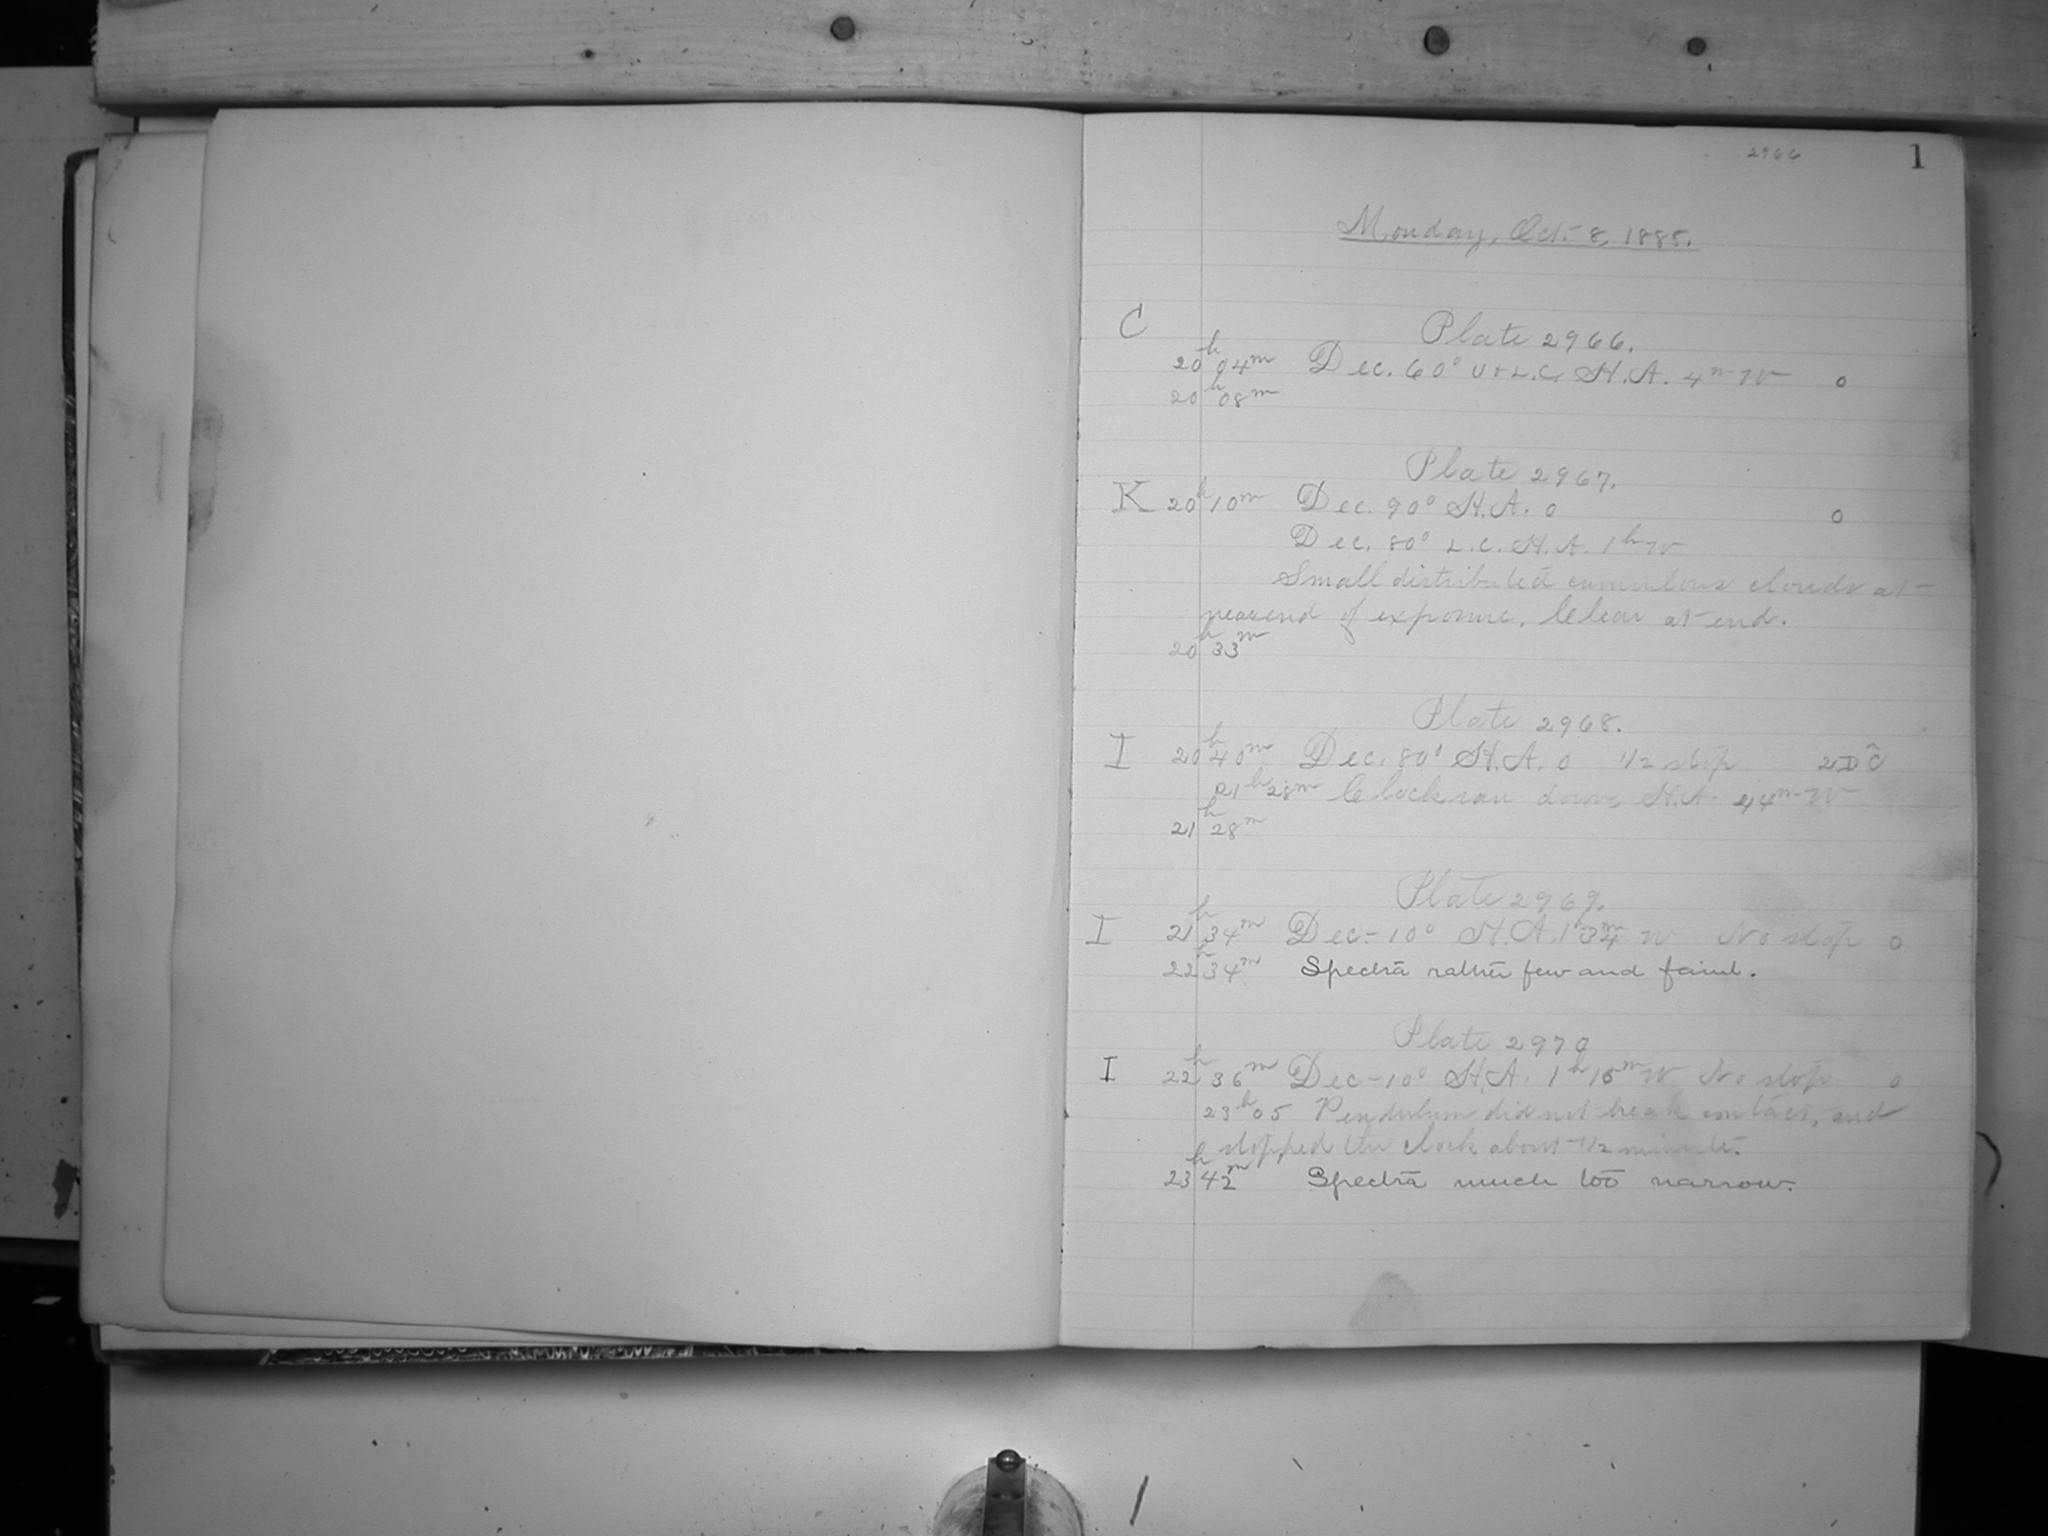 2966 1
Monday, Oct. 8, 1885.
C Plate 2966.
20h 04m Dec. 60° U + L.C. H.A. 4m W 0
20h 08m
Plate 2967.
K 20h 10m Dec. 90° H.A. 0 0
Dec. 80° L.C. H.A. 1h W
Small distributed cumulous clouds at
near end of exposure. Clear at end.
20h 33m
Plate 2968.
I 20h 40m Dec. 80° H.A. 0 1/2 stop
21h 28m Clock ran down, H.A. 44m W
21h 28m
Plate 2969.
I 21h 34m Dec. -10° H.A. 1h 34m W No stop 0
22h 34m Spectra rather few and faint.
Plate 2970
I 22h 36m Dec -10° H.A. 1h 15m W No stop 0
23h 05 Pendulum did not break contact, and
stopped the clock about 1/2 minute.
23h 42m Spectra much too narrow.